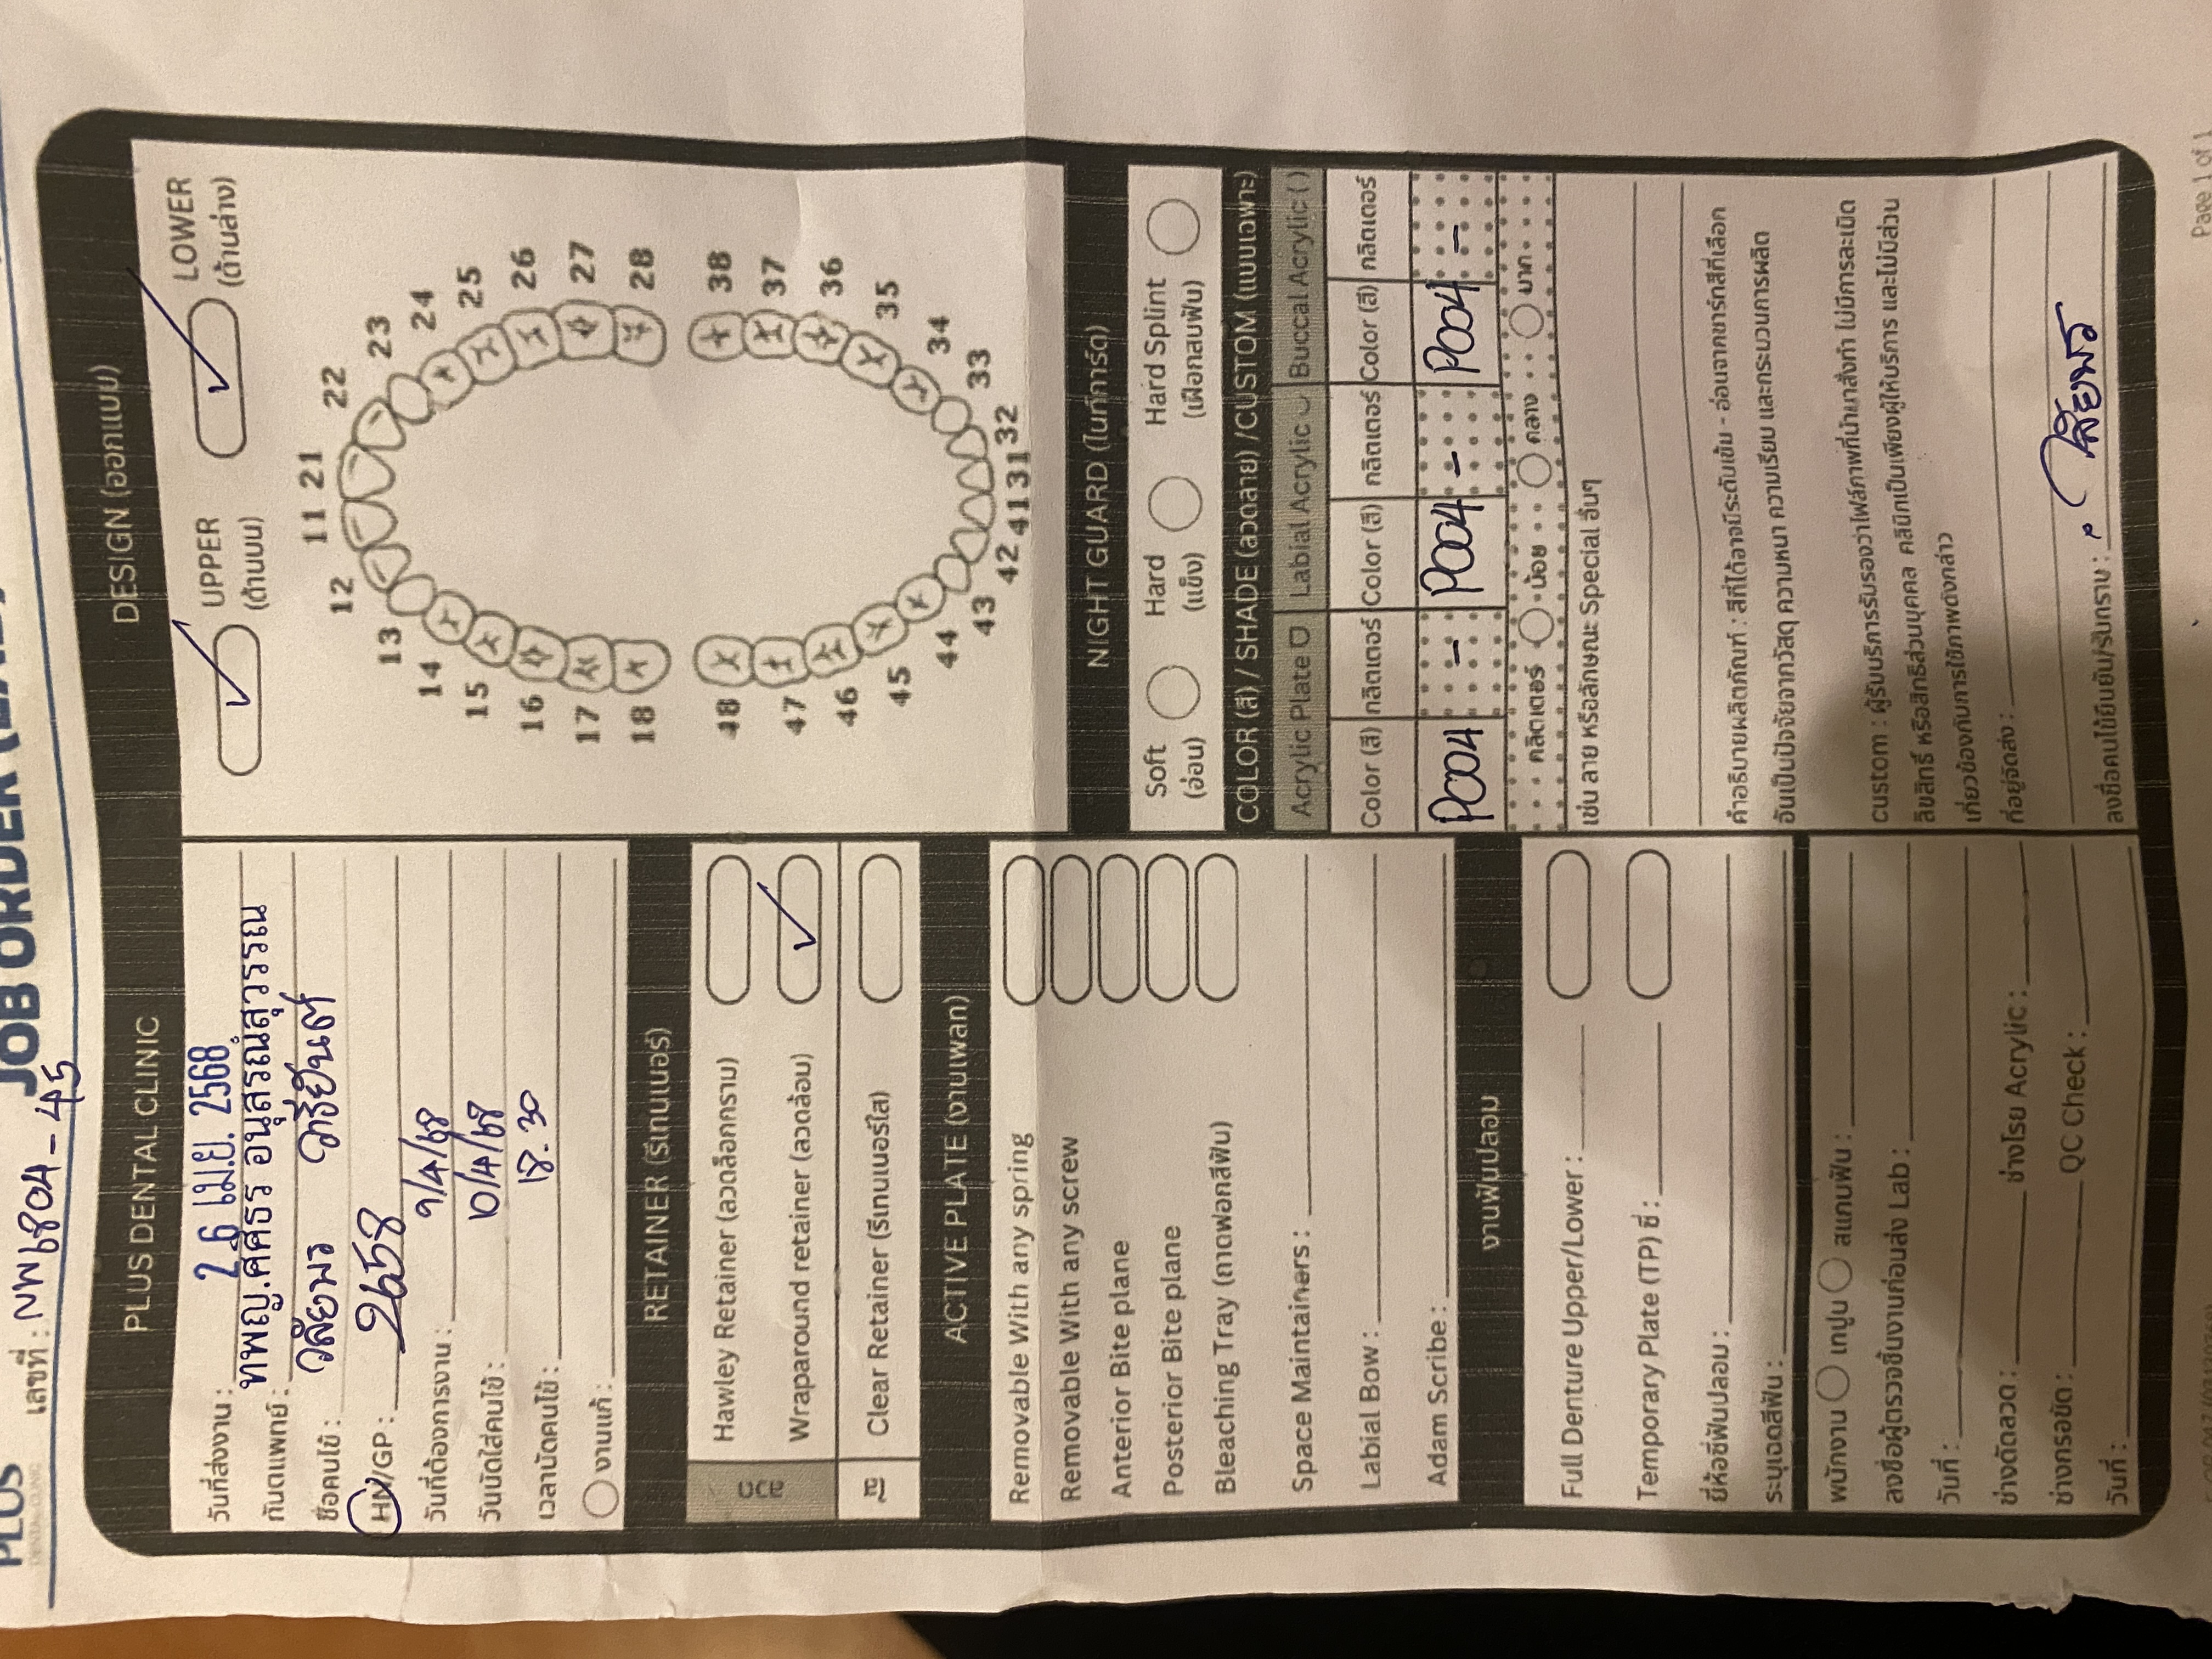 PLUS
DENTAL CLINIC
เลขที่ : NW6804-45
JOB ORDER
PLUS DENTAL CLINIC
วันที่ส่งงาน : 26 เม.ย. 2568
ทันตแพทย์ : ทพญ.ศศิธร อนุสรณ์สุวรรณ
ชื่อคนไข้ : วลัยพร วารียันต์
HN/GP : 2658
วันที่ต้องการงาน : 9/4/68
วันนัดใส่คนไข้ : 10/4/68
เวลานัดคนไข้ : 18.30
งานแก้ :
RETAINER (รีเทนเนอร์)
ลวด
Hawley Retainer (ลวดล็อกกราม)
Wraparound retainer (ลวดล้อม)
ใส
Clear Retainer (รีเทนเนอร์ใส)
ACTIVE PLATE (งานเพลท)
Removable With any spring
Removable With any screw
Anterior Bite plane
Posterior Bite plane
Bleaching Tray (ถาดฟอกสีฟัน)
Space Maintainers :
Labial Bow :
Adam Scribe :
งานฟันปลอม
Full Denture Upper/Lower :
Temporary Plate (TP) ซี่ :
ยี่ห้อซี่ฟันปลอม :
ระบุเฉดสีฟัน :
พนักงาน เทปูน สแกนฟัน :
ลงชื่อผู้ตรวจชิ้นงานก่อนส่ง Lab :
วันที่ :
ช่างดัดลวด : ช่างโรย Acrylic :
ช่างกรอขัด : QC Check :
วันที่ :
DESIGN (ออกแบบ)
UPPER
(ด้านบน)
LOWER
(ด้านล่าง)
11 21
12 22
13 23
14 24
15 25
16 26
17 27
18 28
48 38
47 37
46 36
45 35
44 34
43 33
42 41 31 32
NIGHT GUARD (ไนท์การ์ด)
Soft Hard Hard Splint
(อ่อน) (แข็ง) (เฝือกสบฟัน)
COLOR (สี) / SHADE (ลวดลาย) /CUSTOM (แบบเฉพาะ)
Acrylic Plate Labial Acrylic Buccal Acrylic ( )
Color (สี) กลิตเตอร์ Color (สี) กลิตเตอร์ Color (สี) กลิตเตอร์
P004 - P004 - P004 -
กลิตเตอร์ น้อย กลาง มาก
เช่น ลาย หรือลักษณะ Special อื่นๆ
คำอธิบายผลิตภัณฑ์ : สีที่ได้อาจมีระดับเข้ม - อ่อนจากชาร์ทสีที่เลือก
อันเป็นปัจจัยจากวัสดุ ความหนา ความเรียบ และกระบวนการผลิต
custom : ผู้รับบริการรับรองว่าไฟล์ภาพที่นำมาสั่งทำ ไม่มีการละเมิด
ลิขสิทธิ์ หรือสิทธิส่วนบุคคล คลินิกเป็นเพียงผู้ให้บริการ และไม่มีส่วน
เกี่ยวข้องกับการใช้ภาพดังกล่าว
ที่อยู่จัดส่ง :
ลงชื่อคนไข้ยืนยัน/รับทราบ : วลัยพร
Page 1 of 1